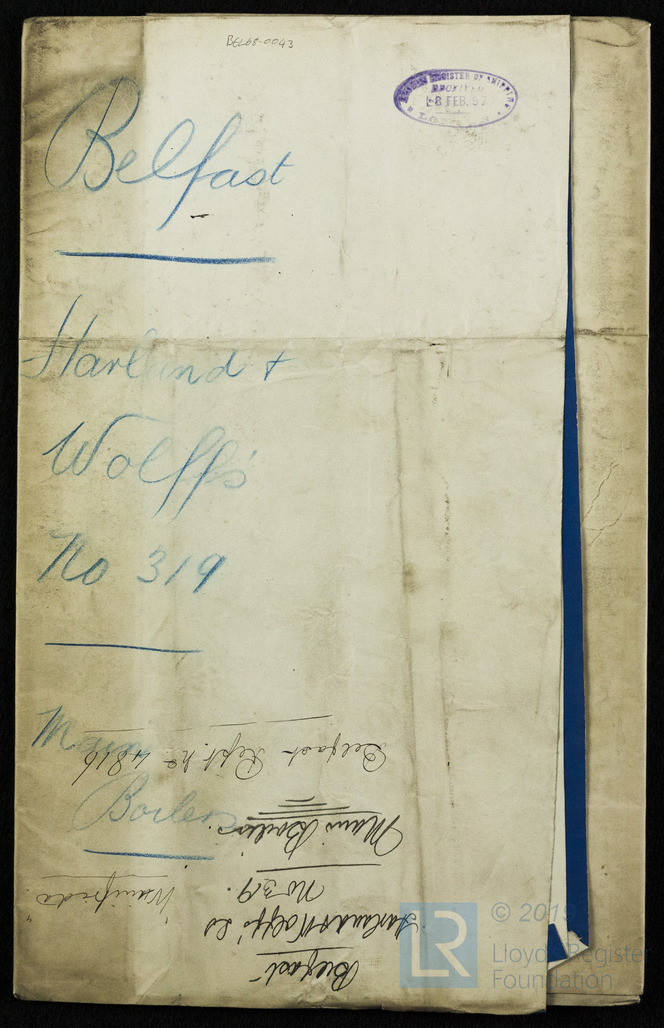 BEL68-0043
LLOYD'S REGISTER OF SHIPPING
RECEIVED
8 FEB. 97
LONDON
Belfast
Harland &
Wolff's
No 319
Main
Boilers
Belfast
Harland & Wolff's Ld
No 319.
Main Boilers.
Belfast Rept. No 4816
"Winifreda"
LR
© 2019
Lloyd's Register
Foundation